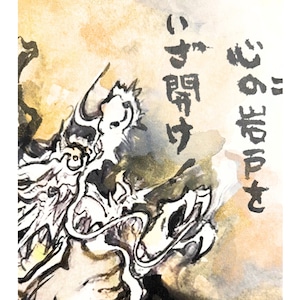 心の岩戸を
いざ開け！